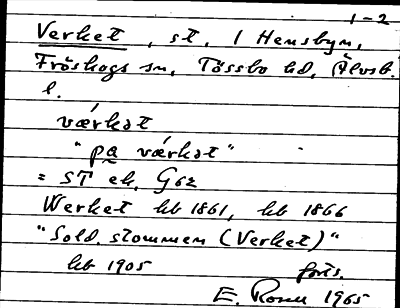 1-2
Verket, st, 1 Hensbyn,
Fröskogs sn, Tössbo hd, Älvsb.
l.
værkət
"pa værkət"
= ST ek, G62
Werket hb 1861, hb 1866
"Sold. stommen (Verket)"
hb 1905 forts.
E. 1965